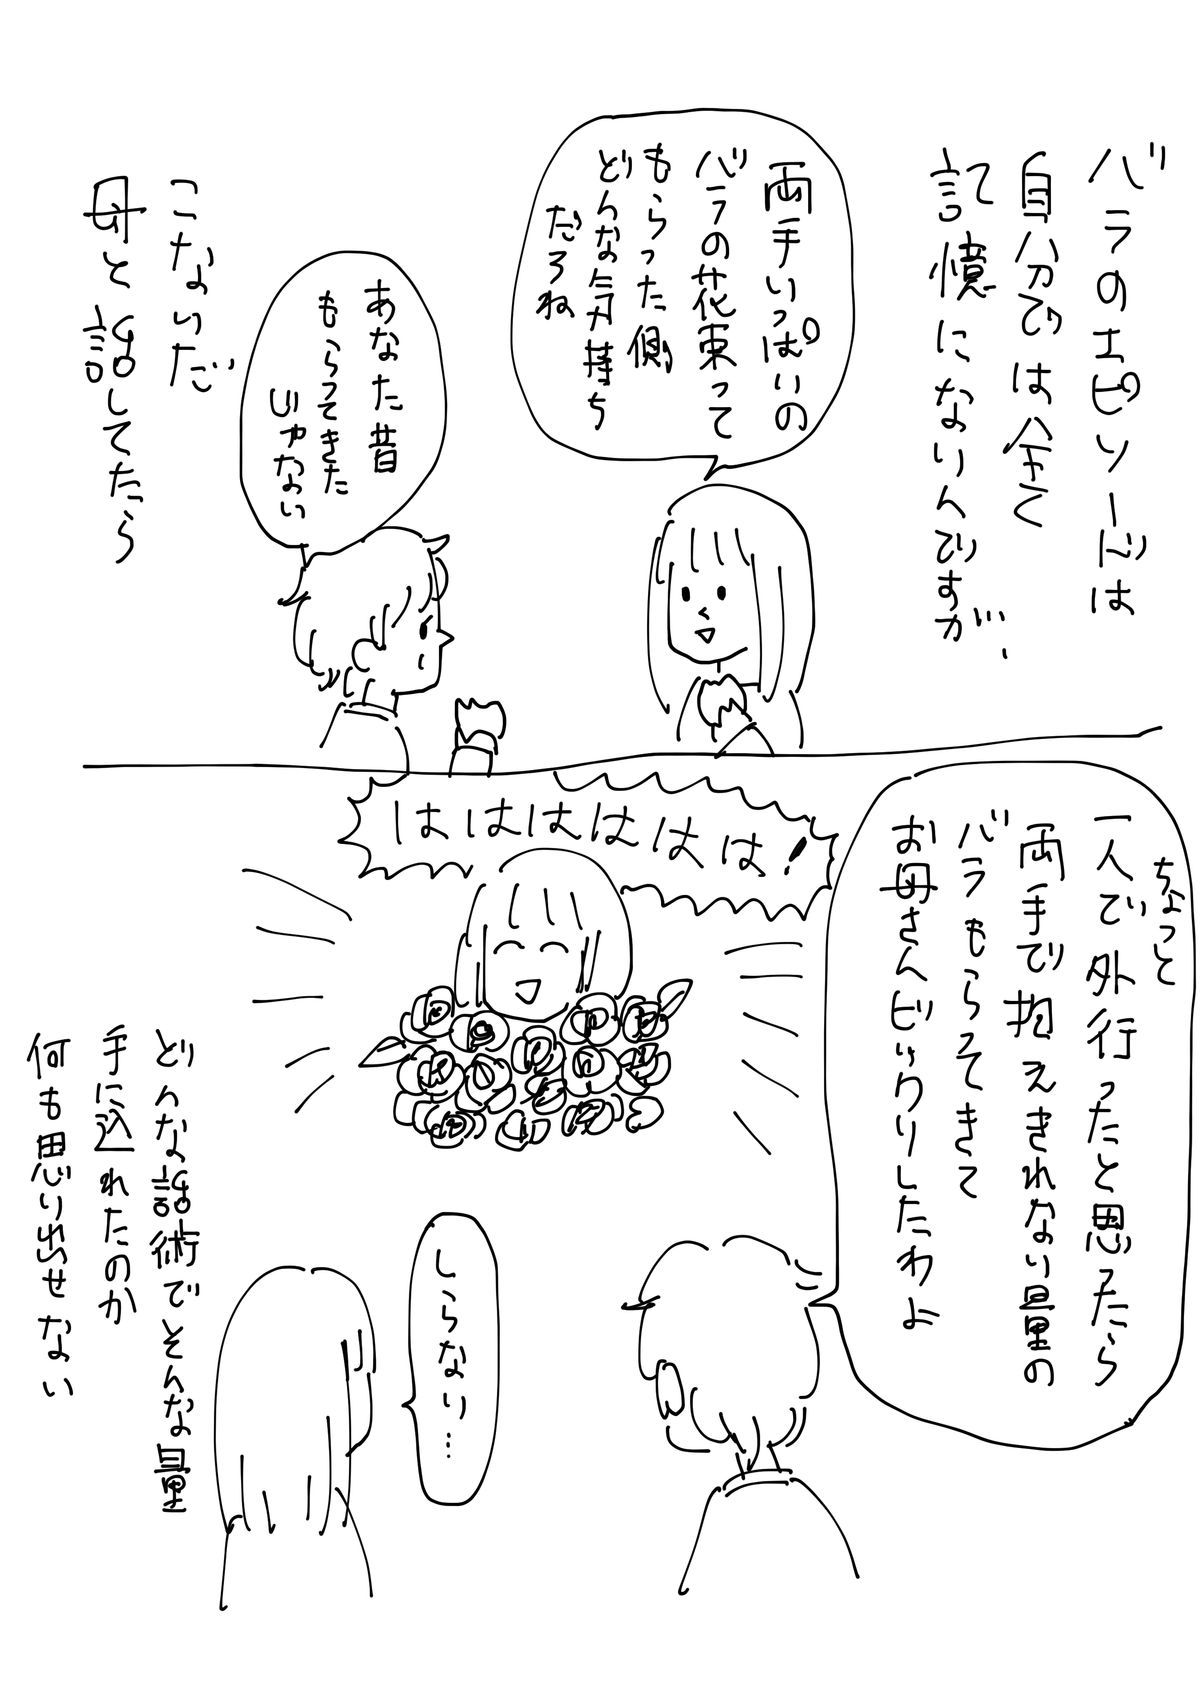 バラのエピソードは
自分では全く
記憶にないんですが…
両手いっぱいの
バラの花束って
もらった側
どんな気持ち
だろね
こないだ
母と話してたら
あなた昔
もらってきた
じゃない
ちょっと
一人で外行ったと思ったら
両手で抱えきれない量の
バラもらってきて
お母さんビックリしたわよ
はははははは!
しらない…
どんな話術でそんな量
手に込れたのか
何も思い出せない